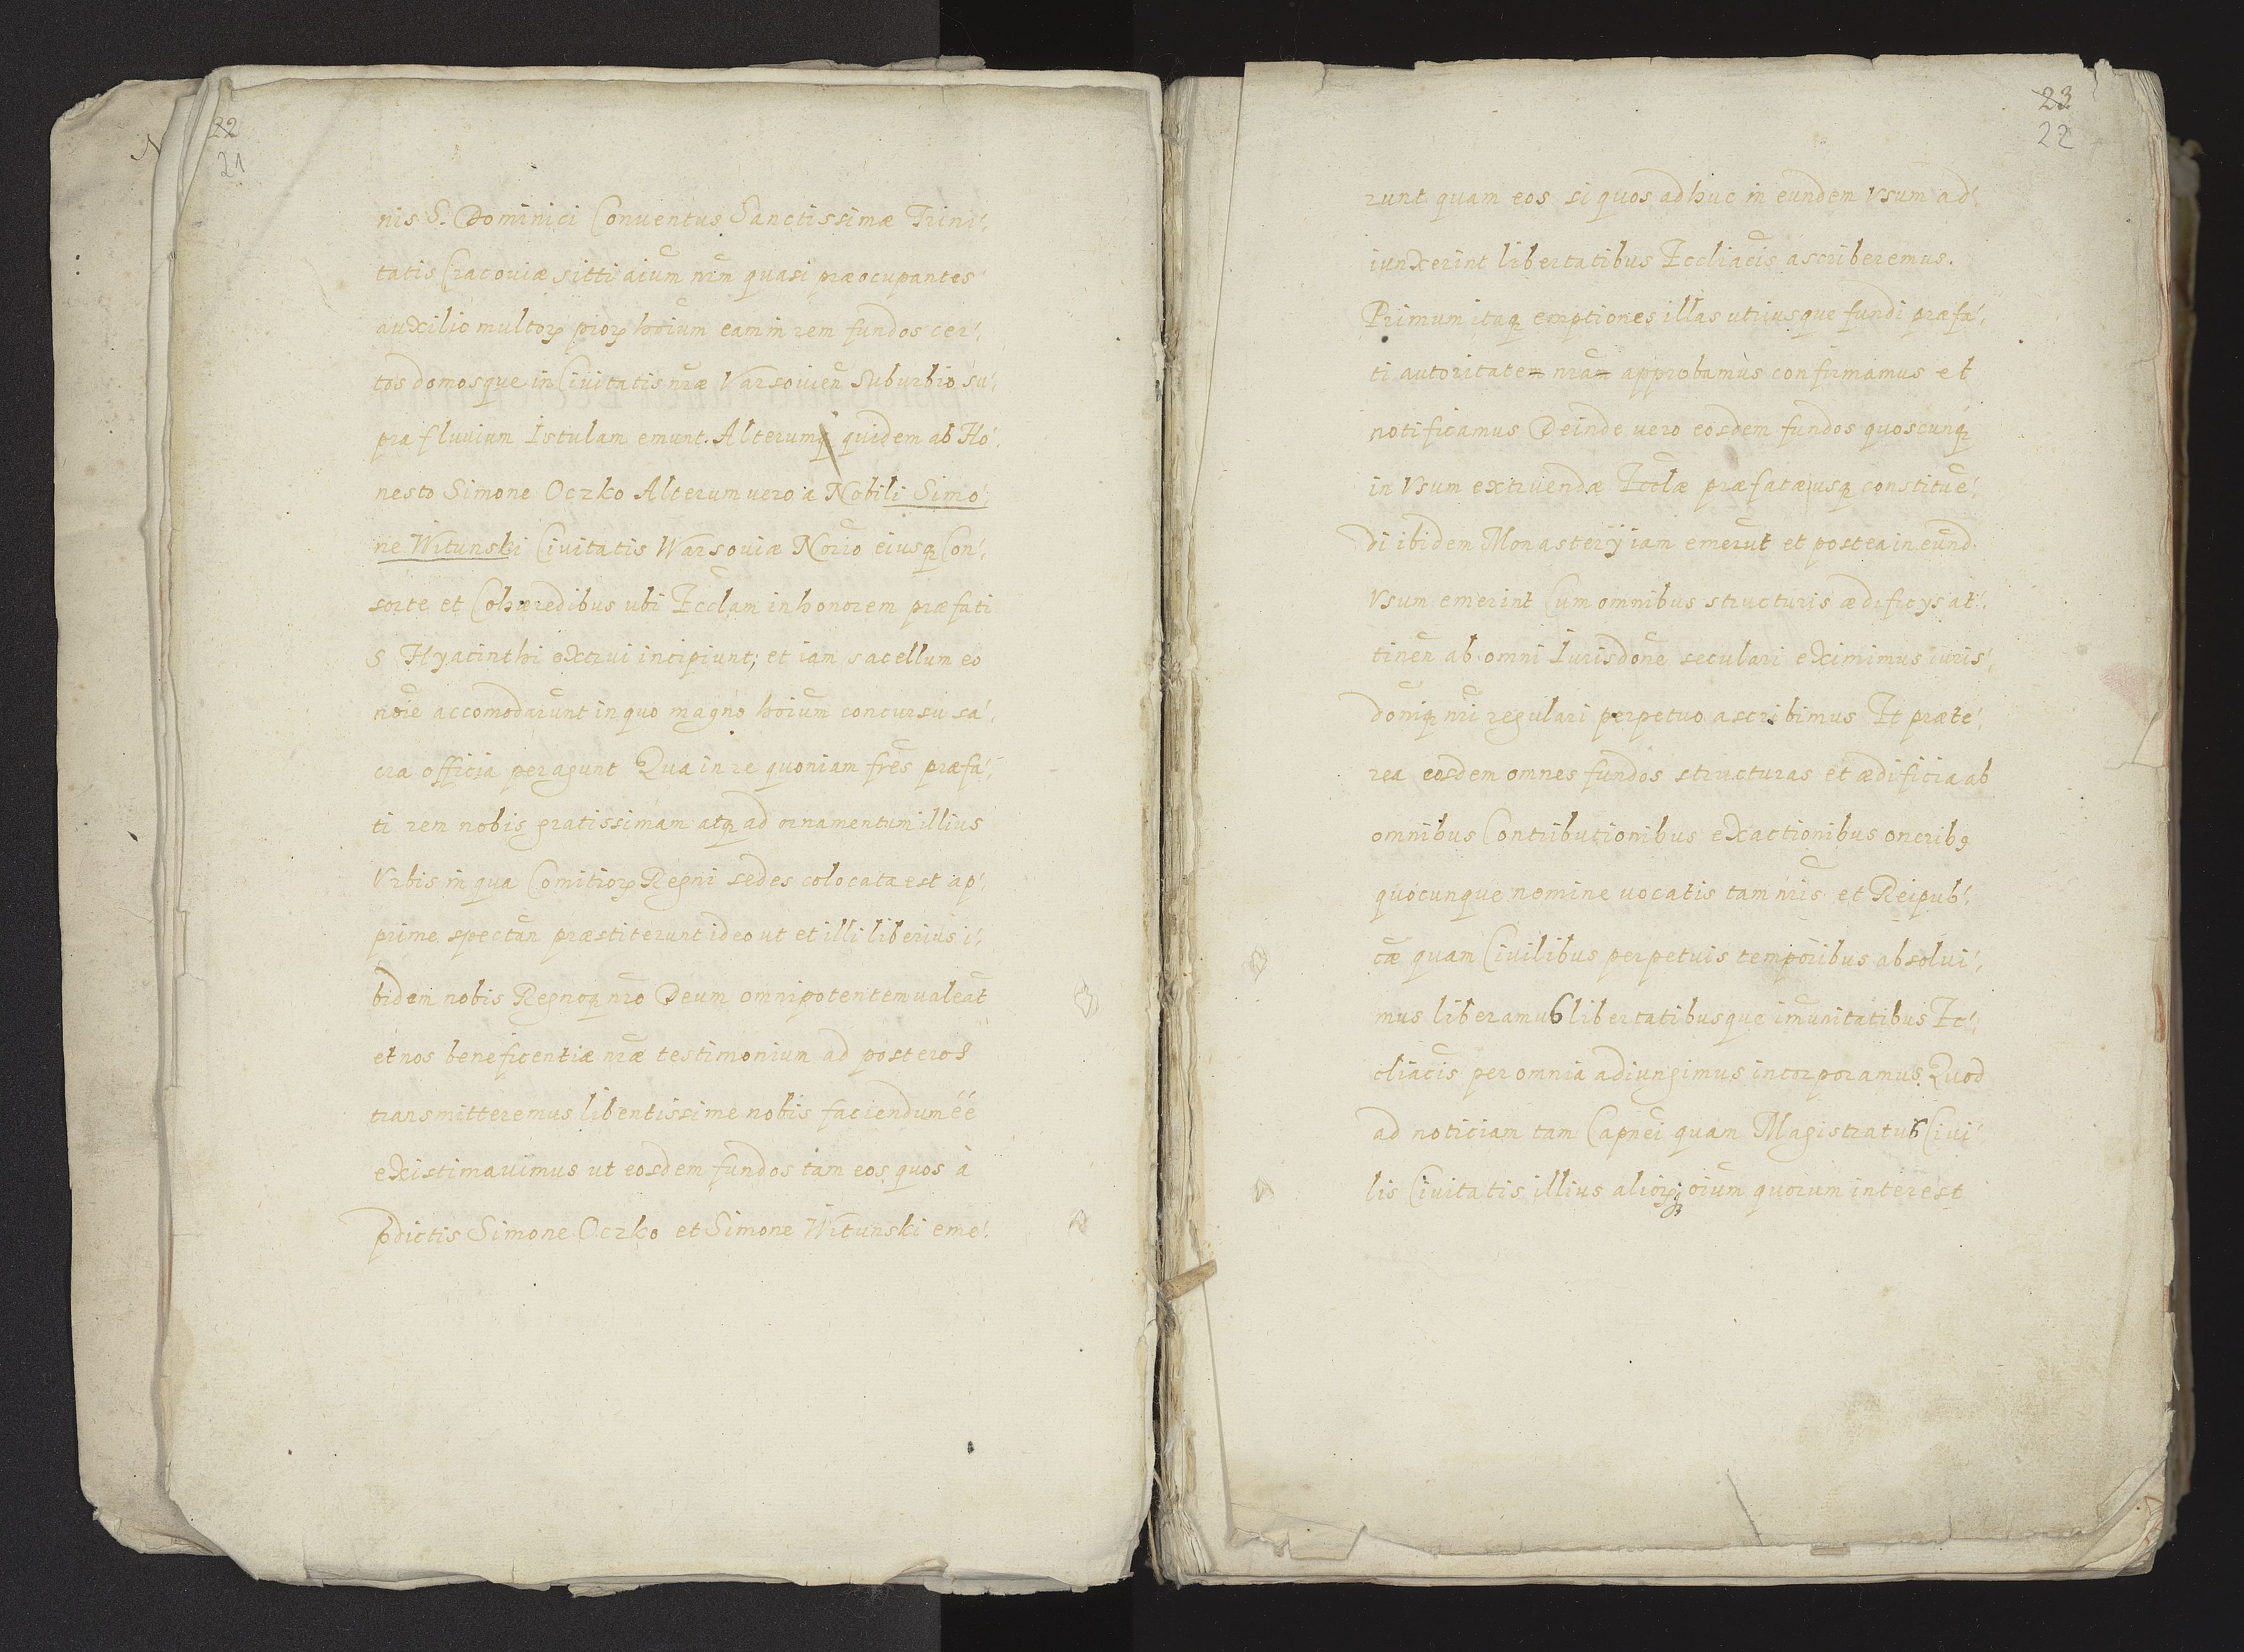 22
21
nis S. Dominici Conuentus Sanctissimæ Trini⸗
tatis Cracouiæ sitti aium nrm quasi præocupantes
auxilio multorꝝ piorꝝ hoium eam in rem fundos cer⸗
tos domosque in Ciuitatis nræ Varsouien Suburbio su⸗
pra fluuium Istulam emunt. Alterumꝗ quidem ab Ho⸗
nesto Simone Oczko Alterum vero a Nobili Simo⸗
ne Witunski Ciuitatis Warsouiæ Norio eiusqꝫ Con⸗
sorte et Cohæredibus ubi Ecclam in honorem præfati
S Hyacinthi extrui incipiunt; et iam sacellum eo
noie accomodarunt in quo magno hoium concursu sa⸗
cra officia peragunt Qua in re quoniam fres præfa⸗
ti rem nobis gratissimam atqꝫ ad ornamentum illius
Vrbis in qua Comitiorꝝ Regni sedes colocata est ap⸗
prime spectan præstiterunt ideo ut et illi liberius i⸗
bidem nobis Regnoqꝫ nro Deum omnipotentem valeat
et nos beneficentiæ nræ testimonium ad posteros
transmitteremus libentissime nobis faciendum éé
existimavimus ut eosdem fundos tam eos quos à
pdictis Simone Oczko et Simone Witunski eme⸗
23
22
runt quam eos si quos adhuc in eundem Vsum ad⸗
iunxerint libertatibus Eccliacis ascriberemus.
Primum itaqꝫ emptiones illas utriusque fundi præfa⸗
ti autoritate nra approbamus confirmamus et
notificamus Deinde vero eosdem fundos quoscunqꝫ
in Vsum extruendæ Ecclæ præfatæ usqꝫ constitue⸗
di ibidem Monasterÿ iam emerut et postea in eund
Vsum emerint Cum omnibus structuris ædificÿs at⸗
tinen ab omni Iurisdone seculari eximimus iuris⸗
doniqꝫ nri regulari perpetuo ascribimus Et præte⸗
rea eosdem omnes fundos structuras et ædificia ab
omnibus Contributionibus exactionibus oneribꝰ
quocunque nomine uocatis tam nris et Reipub⸗
cæ quam Ciuilibus perpetuis temporibus absolui⸗
mus liberamus libertatibusque imunitatibus Ec⸗
cliacis per omnia adiungimus incorporamus Quod
ad noticiam tam Capnei quam Magistratus Ciui⸗
lis Ciuitatis illius aliorꝝqꝫ oium quorum interest